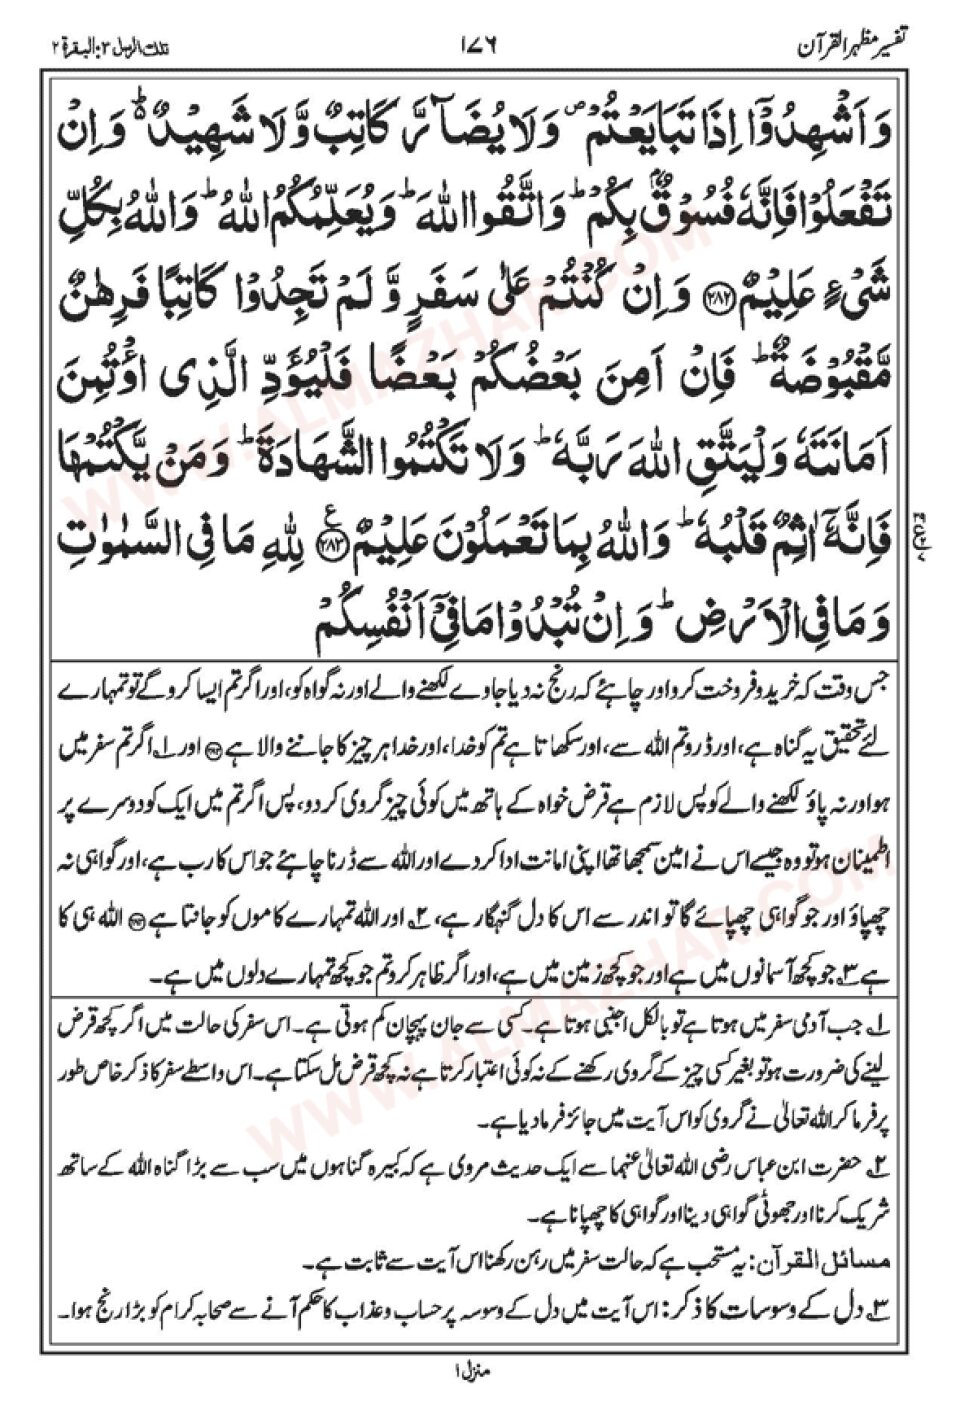 تفسیر مظہر القرآن
۱۷۶
تلک الرسل ۳: البقرۃ ۲
وَاَشْهِدُوْۤا اِذَا تَبَایَعْتُمْ ۪ وَلَا یُضَآرَّ كَاتِبٌ وَّلَا شَهِیْدٌ ؕ۬ وَاِنْ
تَفْعَلُوْا فَاِنَّهٗ فُسُوْقٌۢ بِكُمْ ؕ وَاتَّقُوا اللّٰهَ ؕ وَیُعَلِّمُكُمُ اللّٰهُ ؕ وَاللّٰهُ بِكُلِّ
شَیْءٍ عَلِیْمٌ ﴿۲۸۲﴾ وَاِنْ كُنْتُمْ عَلٰی سَفَرٍ وَّلَمْ تَجِدُوْا كَاتِبًا فَرِهٰنٌ
مَّقْبُوْضَةٌ ؕ فَاِنْ اَمِنَ بَعْضُكُمْ بَعْضًا فَلْیُؤَدِّ الَّذِی اؤْتُمِنَ
اَمَانَتَهٗ وَلْیَتَّقِ اللّٰهَ رَبَّهٗ ؕ وَلَا تَكْتُمُوا الشَّهَادَةَ ؕ وَمَنْ یَّكْتُمْهَا
فَاِنَّهٗۤ اٰثِمٌ قَلْبُهٗ ؕ وَاللّٰهُ بِمَا تَعْمَلُوْنَ عَلِیْمٌ ﴿۲۸۳﴾ ع لِلّٰهِ مَا فِی السَّمٰوٰتِ
وَمَا فِی الْاَرْضِ ؕ وَاِنْ تُبْدُوْا مَا فِیْۤ اَنْفُسِكُمْ
جس وقت کہ خرید و فروخت کرو اور چاہئے کہ رنج نہ دیا جاوے لکھنے والے اور نہ گواہ کو، اور اگر تم ایسا کرو گے تو تمہارے
لئے تحقیق یہ گناہ ہے، اور ڈرو تم اللہ سے، اور سکھاتا ہے تم کو خدا، اور خدا ہر چیز کا جاننے والا ہے ﴿۲۸۲﴾ اور ۱؎ اگر تم سفر میں
ہو اور نہ پاؤ لکھنے والے کو پس لازم ہے قرض خواہ کے ہاتھ میں کوئی چیز گروی کر دو، پس اگر تم میں ایک کو دوسرے پر
اطمینان ہو تو وہ جیسے اس نے امین سمجھا تھا اپنی امانت ادا کر دے اور اللہ سے ڈرنا چاہئے جو اس کا رب ہے، اور گواہی نہ
چھپاؤ اور جو گواہی چھپائے گا تو اندر سے اس کا دل گنہگار ہے، ۲؎ اور اللہ تمہارے کاموں کو جانتا ہے ﴿۲۸۳﴾ اللہ ہی کا
ہے ۳؎ جو کچھ آسمانوں میں ہے اور جو کچھ زمین میں ہے، اور اگر ظاہر کرو تم جو کچھ تمہارے دلوں میں ہے۔
۱؎ جب آدمی سفر میں ہوتا ہے تو بالکل اجنبی ہوتا ہے۔ کسی سے جان پہچان کم ہوتی ہے۔ اس سفر کی حالت میں اگر کچھ قرض
لینے کی ضرورت ہو تو بغیر کسی چیز کے گروی رکھنے کے نہ کوئی اعتبار کرتا ہے نہ کچھ قرض مل سکتا ہے۔ اس واسطے سفر کا ذکر خاص طور
پر فرما کر اللہ تعالیٰ نے گروی کو اس آیت میں جائز فرما دیا ہے۔
۲؎ حضرت ابن عباس رضی اللہ تعالیٰ عنہما سے ایک حدیث مروی ہے کہ کبیرہ گناہوں میں سب سے بڑا گناہ اللہ کے ساتھ
شریک کرنا اور جھوٹی گواہی دینا اور گواہی کا چھپانا ہے۔
مسائل القرآن: یہ مستحب ہے کہ حالت سفر میں رہن رکھنا اس آیت سے ثابت ہے۔
۳؎ دل کے وسوسات کا ذکر: اس آیت میں دل کے وسوسہ پر حساب و عذاب کا حکم آنے سے صحابہ کرام کو بڑا رنج ہوا۔
منزل ۱
WWW.ALMAZHAR.COM
WWW.ALMAZHAR.COM